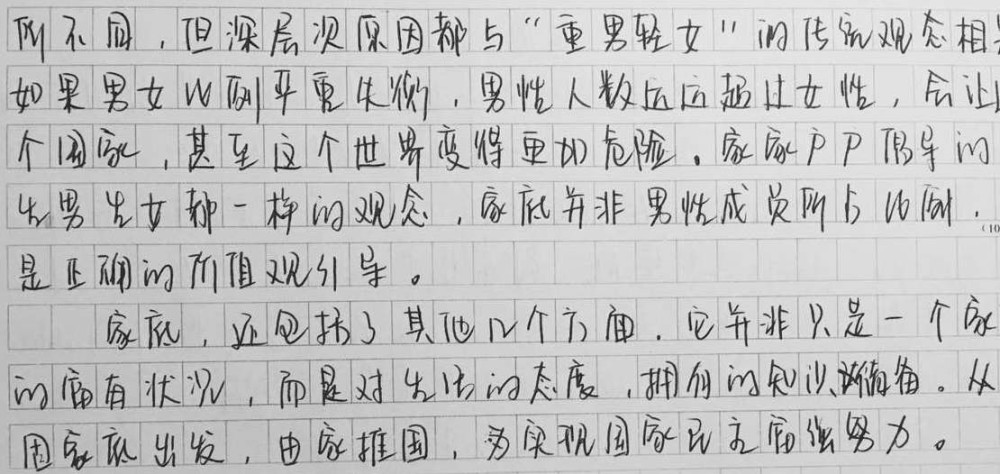 所不同，但深层次原因都与“重男轻女”的传统观念相
如果男女比例严重失衡，男性人数远远超过女性，会让
个国家，甚至这个世界变得更加危险。家家户户倡导的
生男生女都一样的观念，家底并非男性成员所占比例，
(10
是正确的价值观引导。
家底，还包括了其他几个方面，它并非只是一个家
的富有状况，而是对生活的态度，拥有的知识储备。从
国家底出发，由家推国，为实现国家民主富强努力。